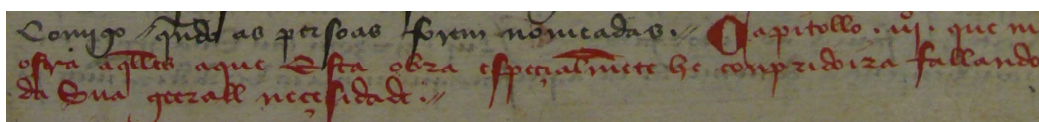 Comigo // qñdo as persoas forem nomeadas. // Capitollo. vjº. que m
ostra aq̃lles aque Esta obra espeçialm̃ete he conpridoira fallando
da Sua geerall neçesidade. //